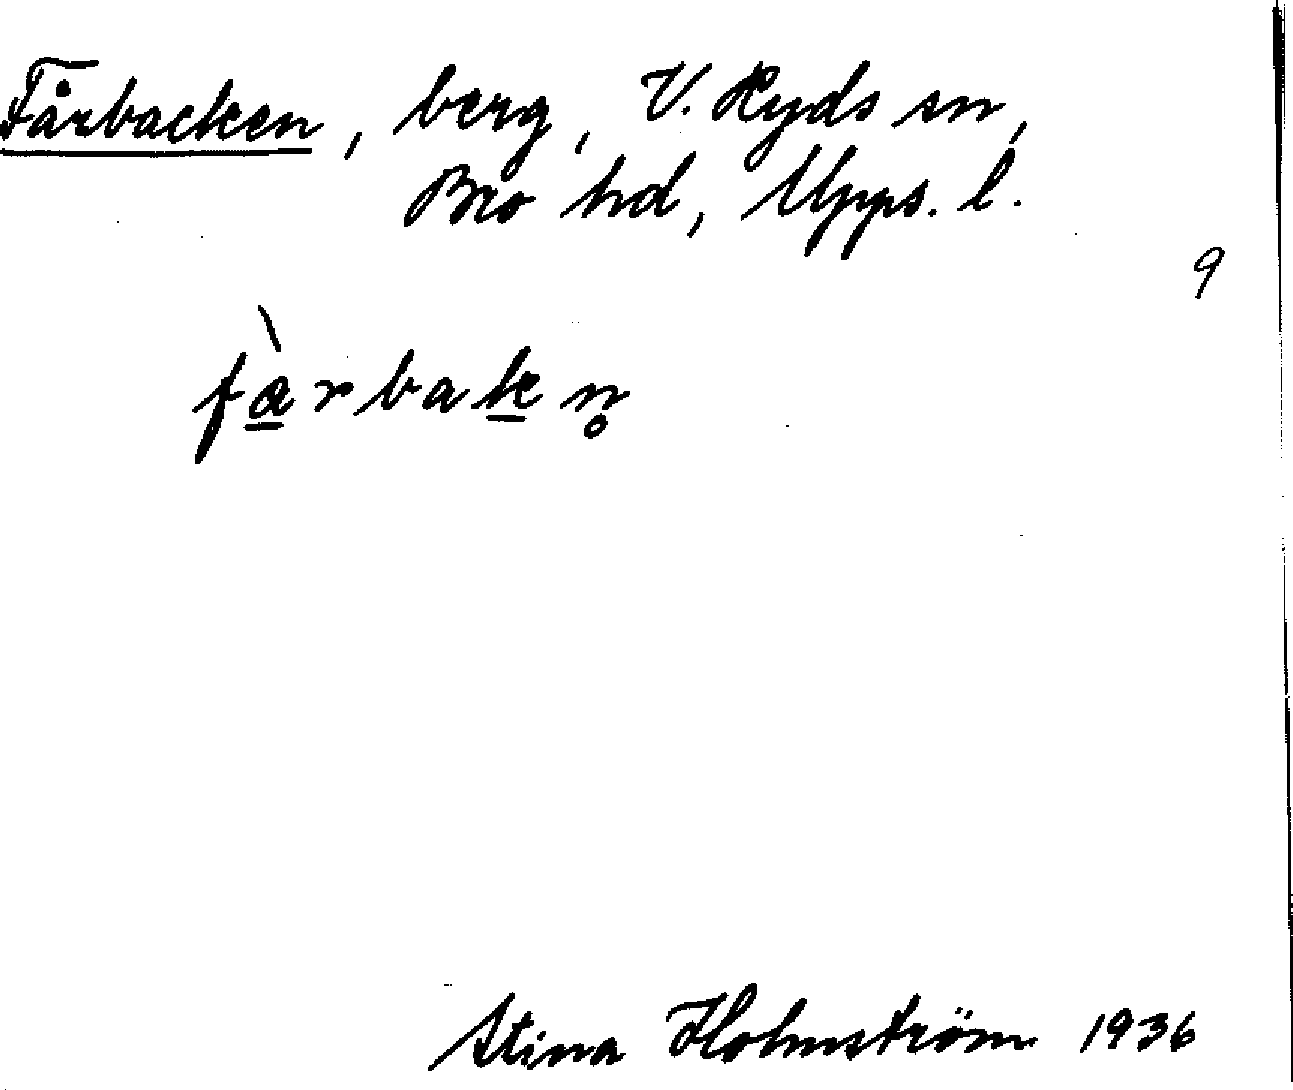 Fårbacken, berg, V. Ryds sn,
Bro hd, Upps. l.
9
fàrbakn̥
Stina Holmström 1936